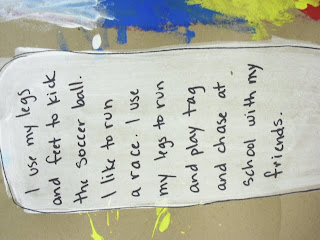 I use my legs
and feet to kick
the soccer ball.
I like to run
a race. I use
my legs to run
and play tag
and chase at
school with my
friends.